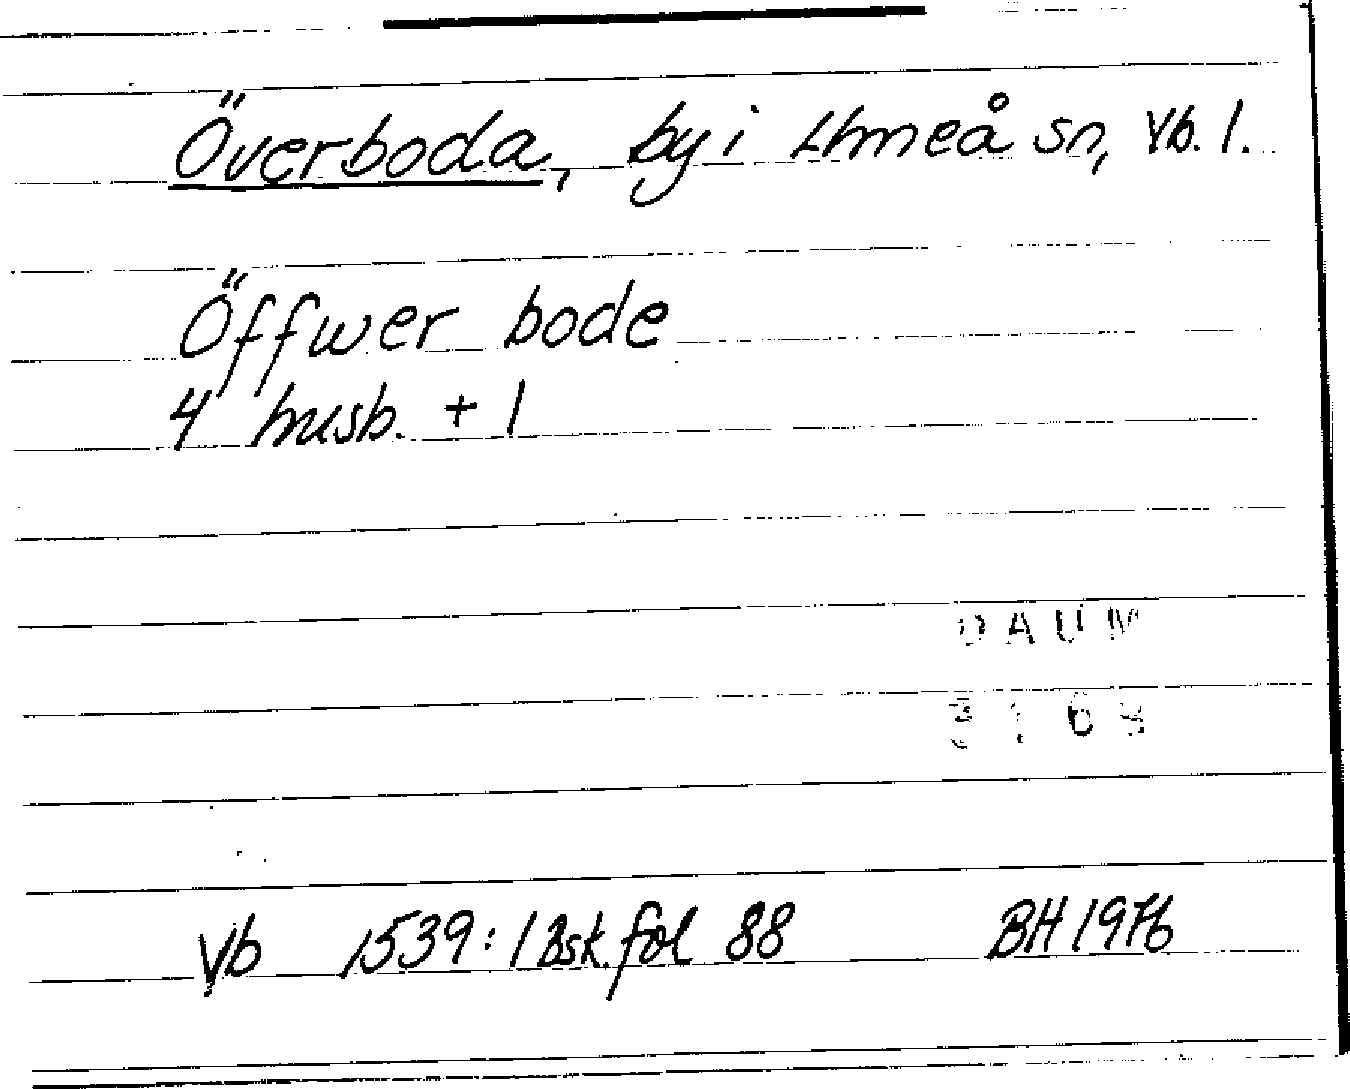 Överboda, by i Umeå sn, Vb. l.
Öffwer bode
4 husb. + 1
DAUM
Vb 1539:1 Bsk. fol 88 BH 1976